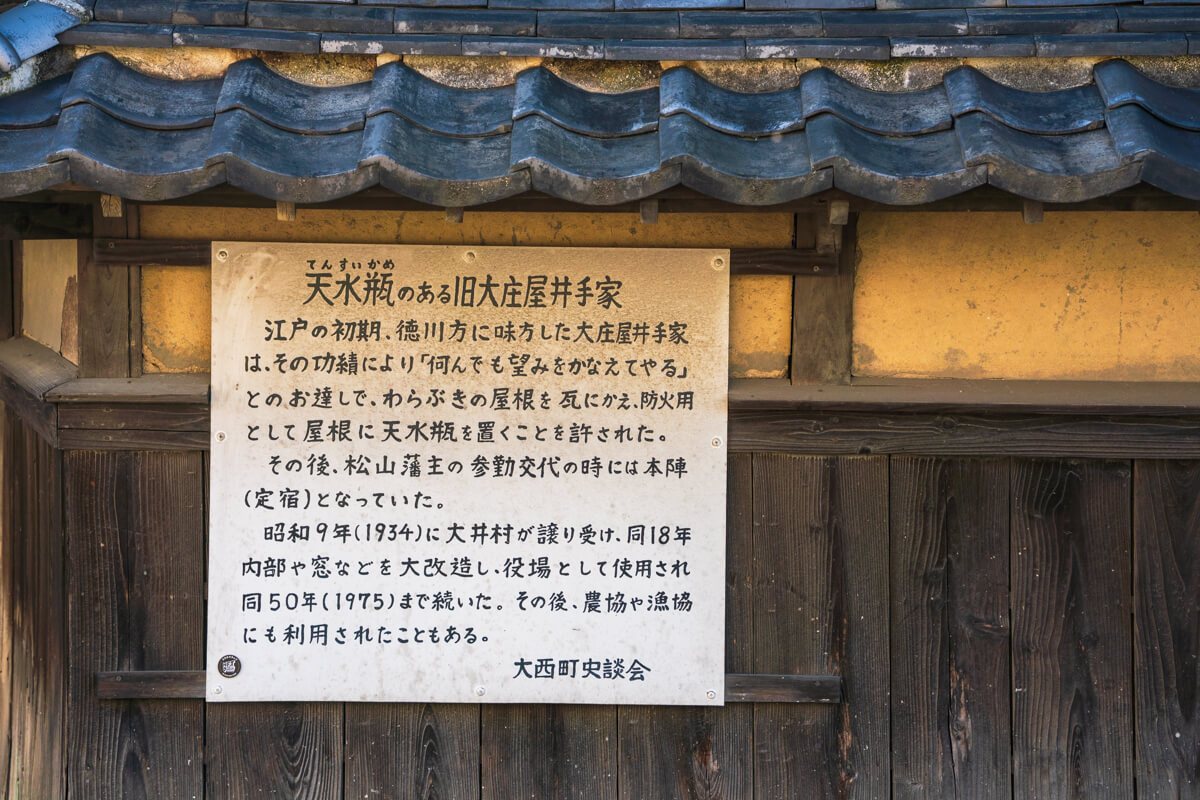 てんすいかめ
天水瓶のある旧大庄屋井手家
江戸の初期、徳川方に味方した大庄屋井手家
は、その功績により「何んでも望みをかなえてやる」
とのお達しで、わらぶきの屋根を瓦にかえ、防火用
として屋根に天水瓶を置くことを許された。
その後、松山藩主の参勤交代の時には本陣
(定宿)となっていた。
昭和9年(1934)に大井村が譲り受け、同18年
内部や窓などを大改造し、役場として使用され
同50年(1975)まで続いた。その後、農協や漁協
にも利用されたこともある。
大西町史談会